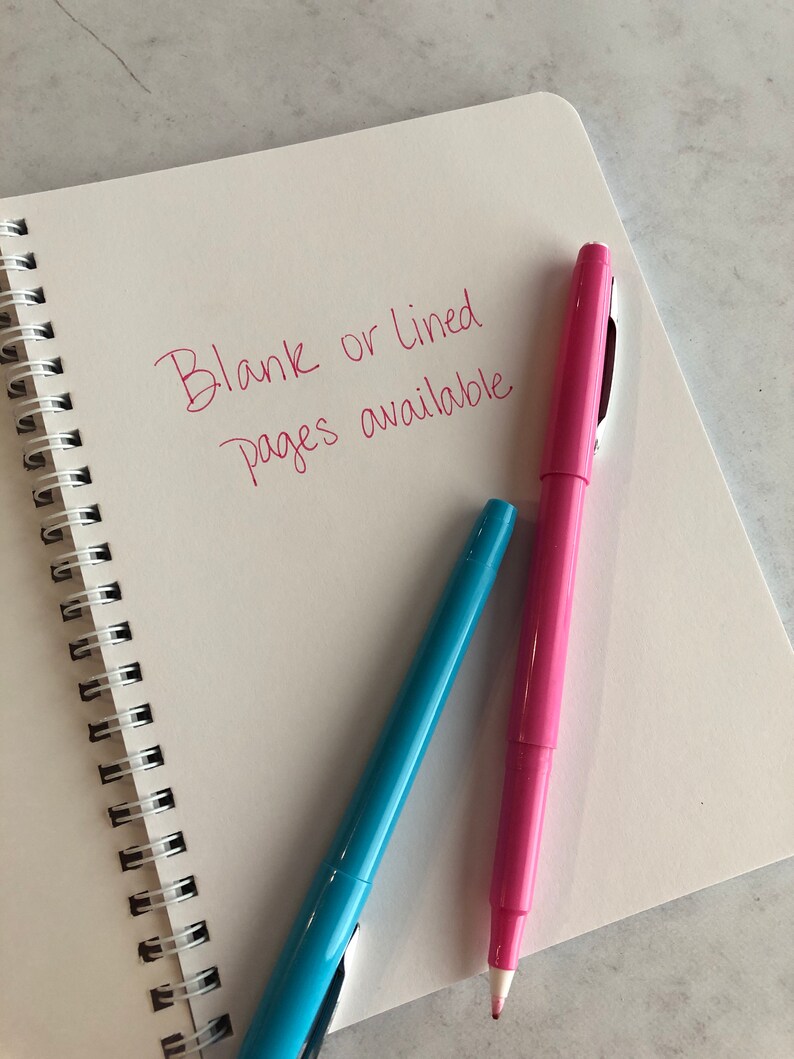 Blank or Lined
pages available